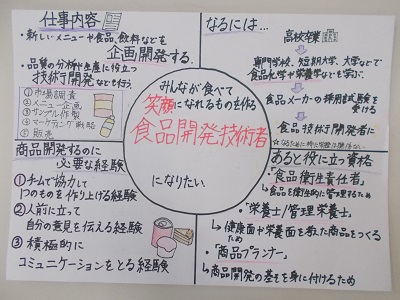 仕事内容
・新しいメニューや食品、飲料などを
企画開発する.
・品質の分析や生産に役立つ
技術開発などを行う.
①市場調査
②メニュー企画
③サンプル作製
④マーケティング戦略
⑤販売
なるには…
高校卒業
専門学校、短期大学、大学などで
食品化学や栄養学などを学ぶ.
食品メーカーの採用試験を
受ける
食品技術開発者に
みんなが食べて
笑顔になれるものを作る
食品開発技術者
になりたい.
商品開発するのに
必要な経験
①チームで協力して
1つのものを作り上げる経験
②人前に立って
自分の意見を伝える経験
③積極的に
コミュニケーションをとる経験
あると役に立つ資格
・「食品衛生責任者」
↳食品を衛生的に管理するため
・「栄養士/管理栄養士」
↳健康面や栄養面を考えた商品をつくる
ため
・「商品プランナー」
↳商品開発の基そを身に付けるため